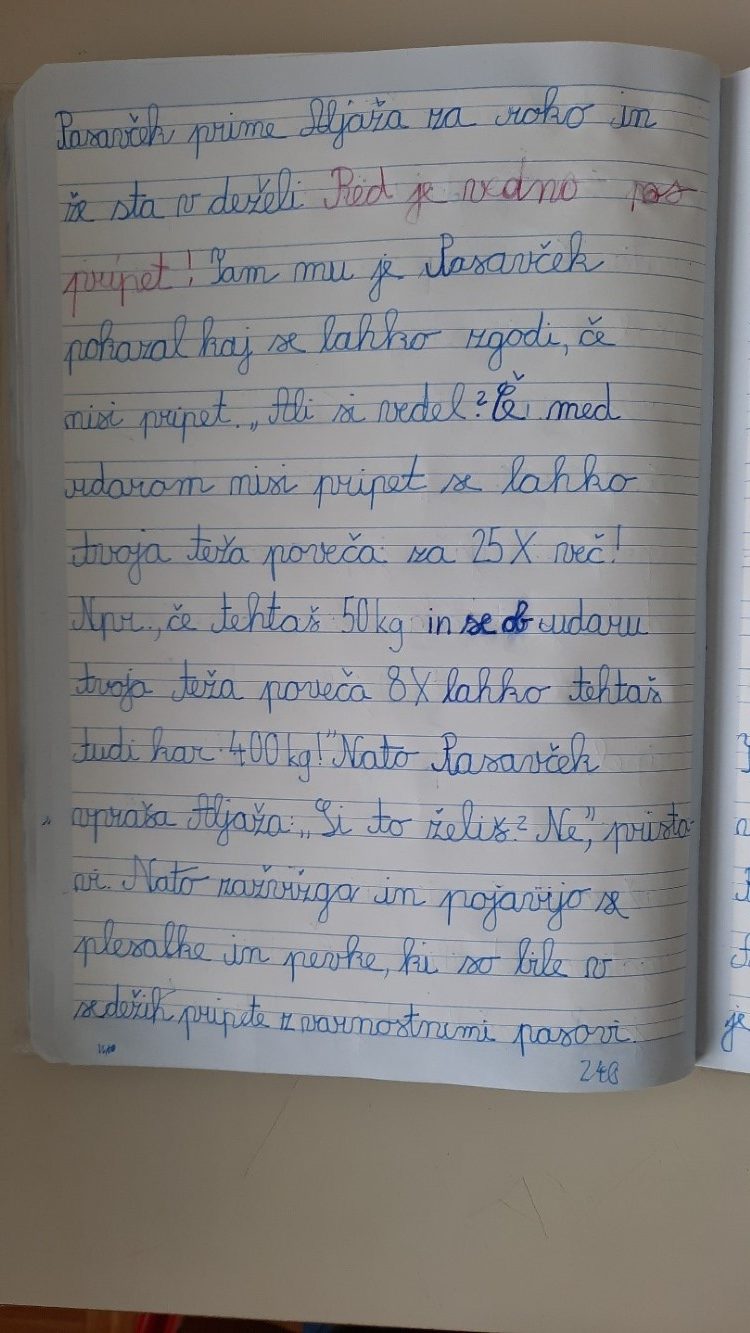 Pasavček prime Aljaža za roko in
že sta v deželi Red je vedno pas
pripet! Tam mu je Pasavček
pokazal kaj se lahko zgodi, če
nisi pripet. „Ali si vedel? Če med
udarom nisi pripet se lahko
tvoja teža poveča za 25 X več!
Npr., če tehtaš 50 kg in se ob udaru
tvoja teža poveča 8 X lahko tehtaš
tudi kar 400 kg!" Nato Pasavček
vpraša Aljaža: „Si to želiš? Ne", prista-
vi. Nato zažvižga in pojavijo se
plesalke in pevke, ki so bile v
sedežih pripete z varnostnimi pasovi.
248